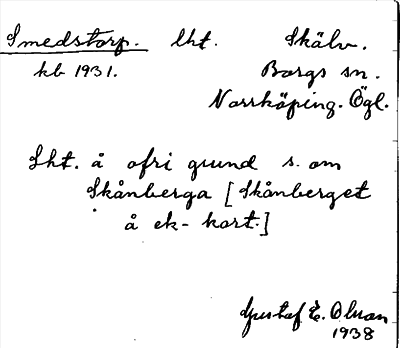 Smedstorp. lht. Skälv.
kb 1931. Borgs sn.
Norrköping. Ögl.
Lht. å ofri grund s. om
Skånberga [Skånberget
å ek-kart.]
Gustaf E. Olsson
1938